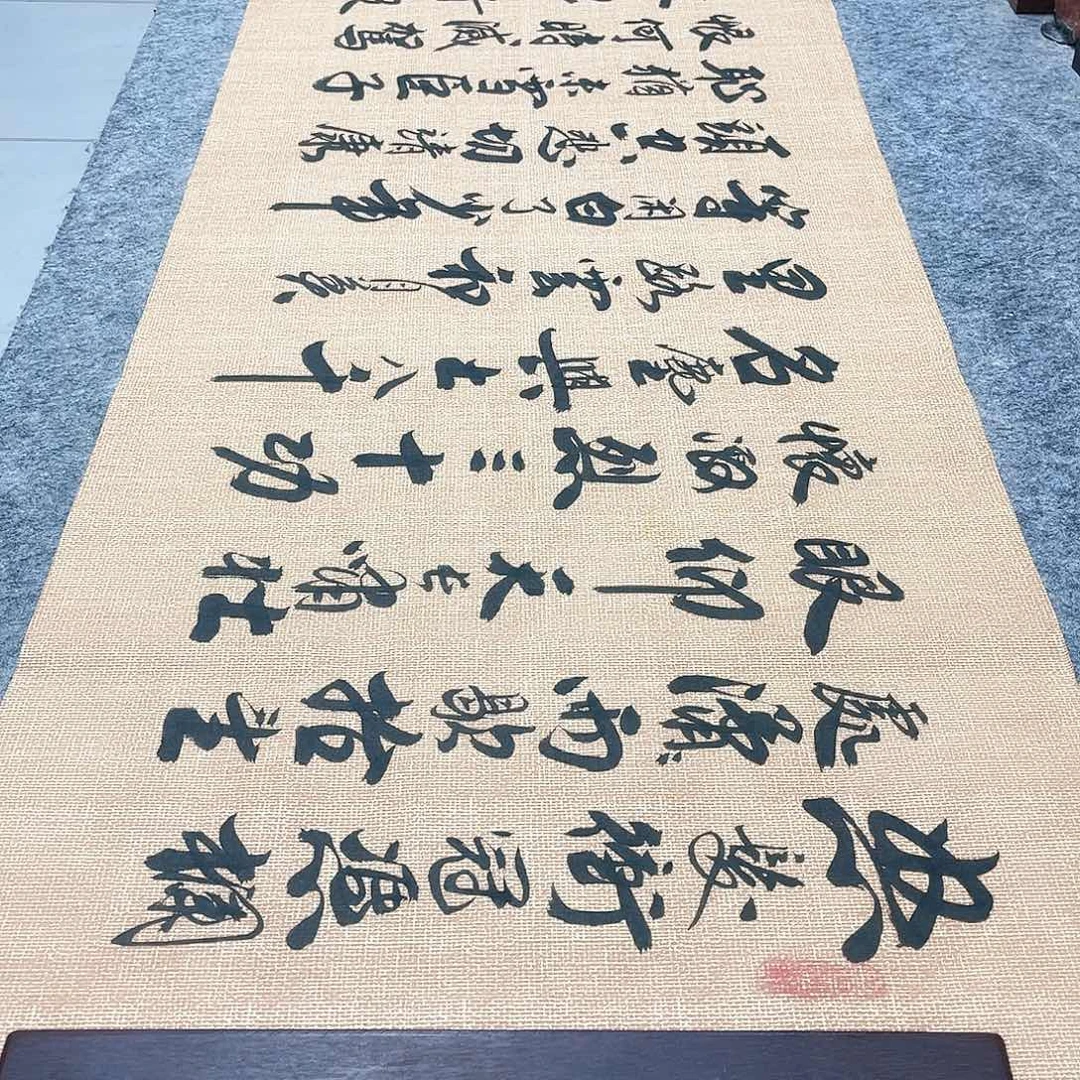 怒髮衝冠憑欄
處瀟〻雨歇抬望
眼仰天長嘯壯
懷激烈三十功
名塵與土八千
里路雲和月莫
等閒白了少年
頭空悲切靖康
恥猶未雪臣子
恨何時滅駕